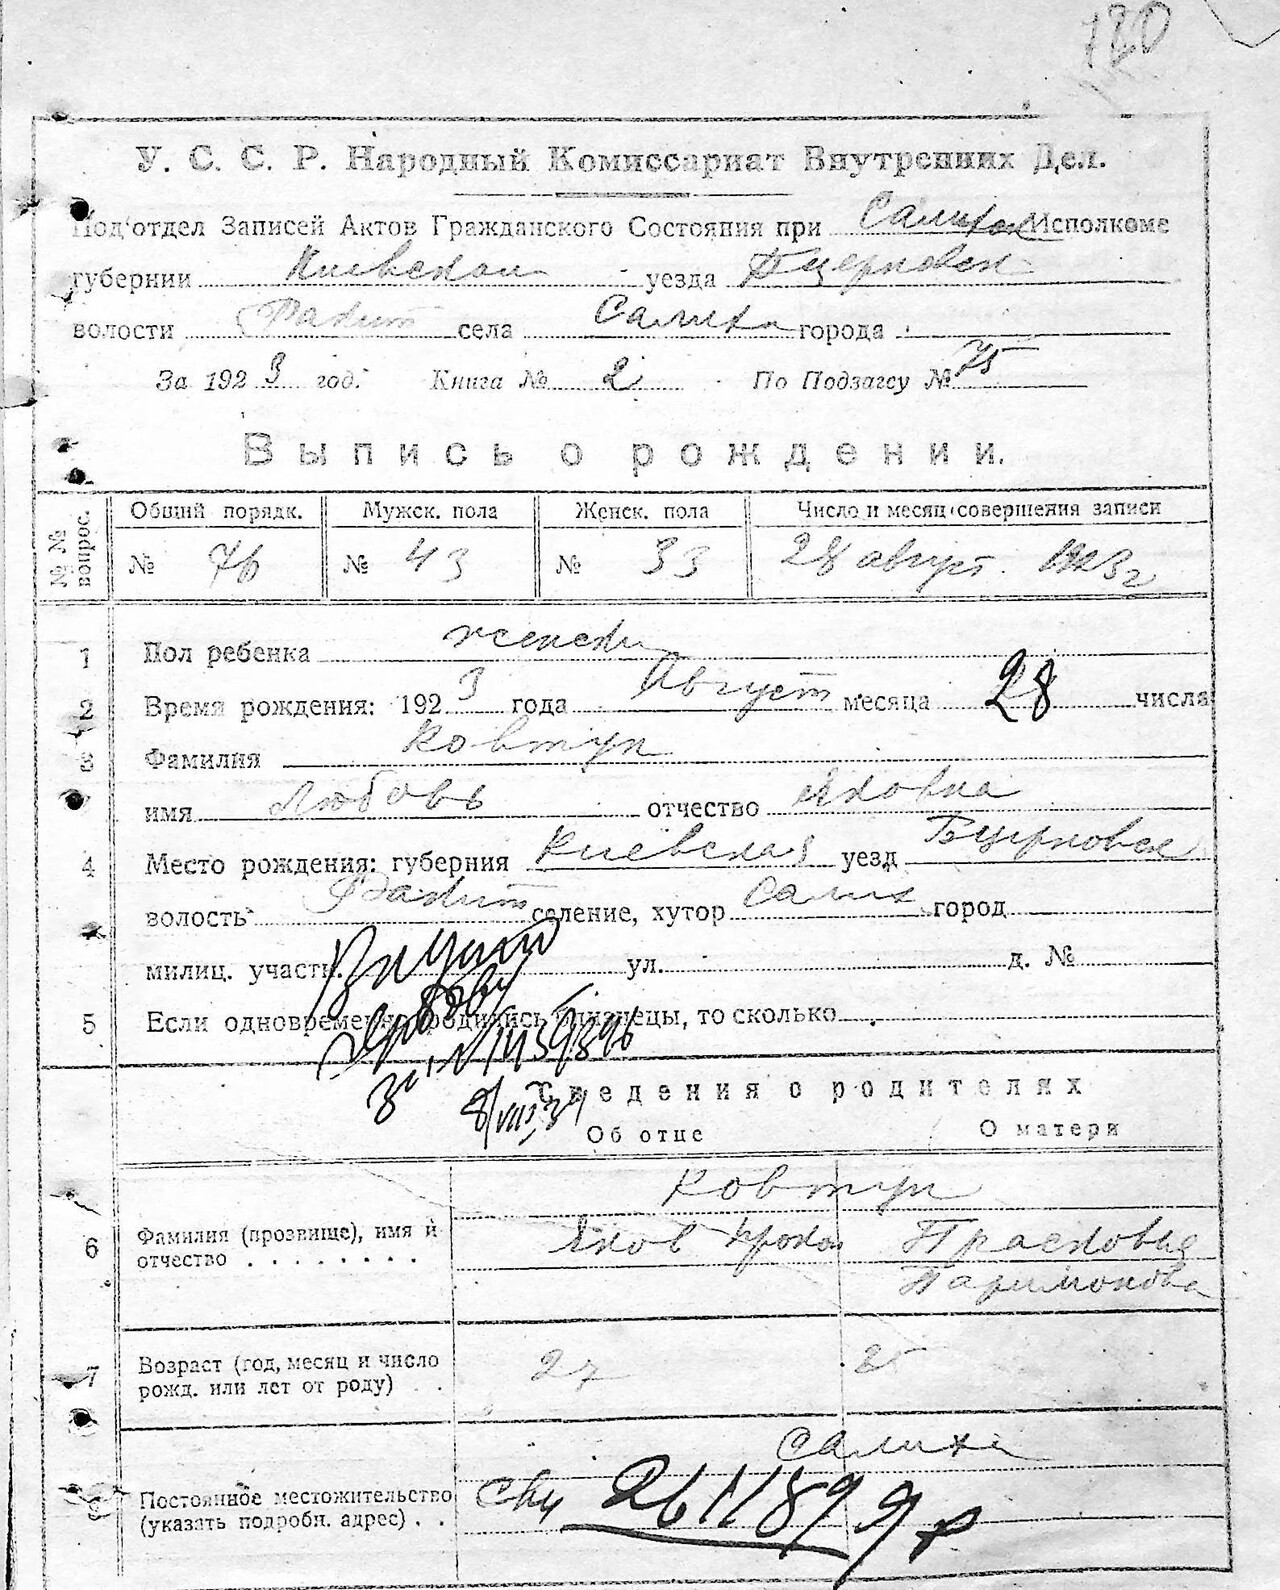 720
У. С. С. Р. Народный Комиссариат Внутренних Дел.
Под'отдел Записей Актов Гражданского Состояния при Салихон Исполкоме
губернии Киевской уезда Бцерковск
волости Ракит села Салиха города
За 1923 год. Книга № 2 По Подзагсу № 75
Выпись о рождении.
№ № вопрос.
Общий порядк. Мужск. пола Женск. пола Число и месяц совершения записи
№ 76 № 43 № 33 28 август. 1923 г
1 Пол ребенка женски
2 Время рождения: 1923 года Август месяца 28 числа
3 Фамилия Ковтун
имя Любовь отчество Яковна
4 Место рождения: губерния Киевская уезд Бцерковск
волость Ракит селение, хутор Салих город
милиц. участ. ул. д. №
5 Если одновременно родились близнецы, то сколько
8/VIII,34
Сведения о родителях
Об отце О матери
Ковтун
6 Фамилия (прозвище), имя и отчество Яков Проков Прасковья
Паримонова
7 Возраст (год, месяц и число рожд. или лет от роду) 27 25
Салиха
8 Постоянное местожительство (указать подробн. адрес)